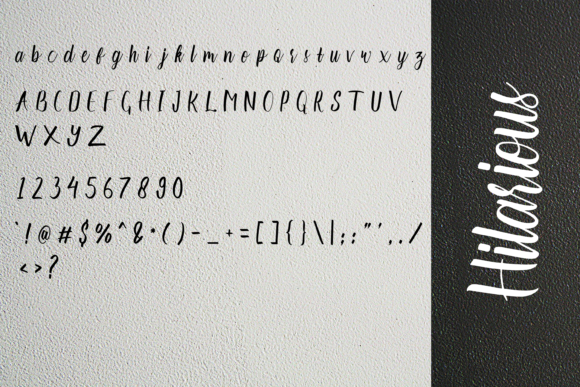 a b c d e f g h i j k l m n o p q r s t u v w x y z
A B C D E F G H I J K L M N O P Q R S T U V
W X Y Z
1 2 3 4 5 6 7 8 9 0
` ! @ # $ % ^ & * ( ) - _ + = [ ] { } \ | ; : " ' , . /
< > ?
Hilarious